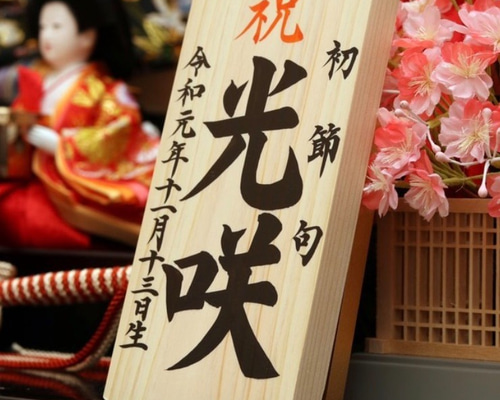 祝
初節句
光咲
令和元年十一月十三日生